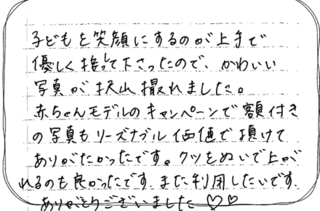 子どもを笑顔にするのが上手で
優しく接って下さったので、かわいい
写真が沢山撮れました。
赤ちゃんモデルのキャンペーンで額付き
の写真もリーズナブル価値で頂けて
ありがたかったです。クツをぬいで上が
れるのも良かったです。また利用したいです。
ありがとうございました♡♡